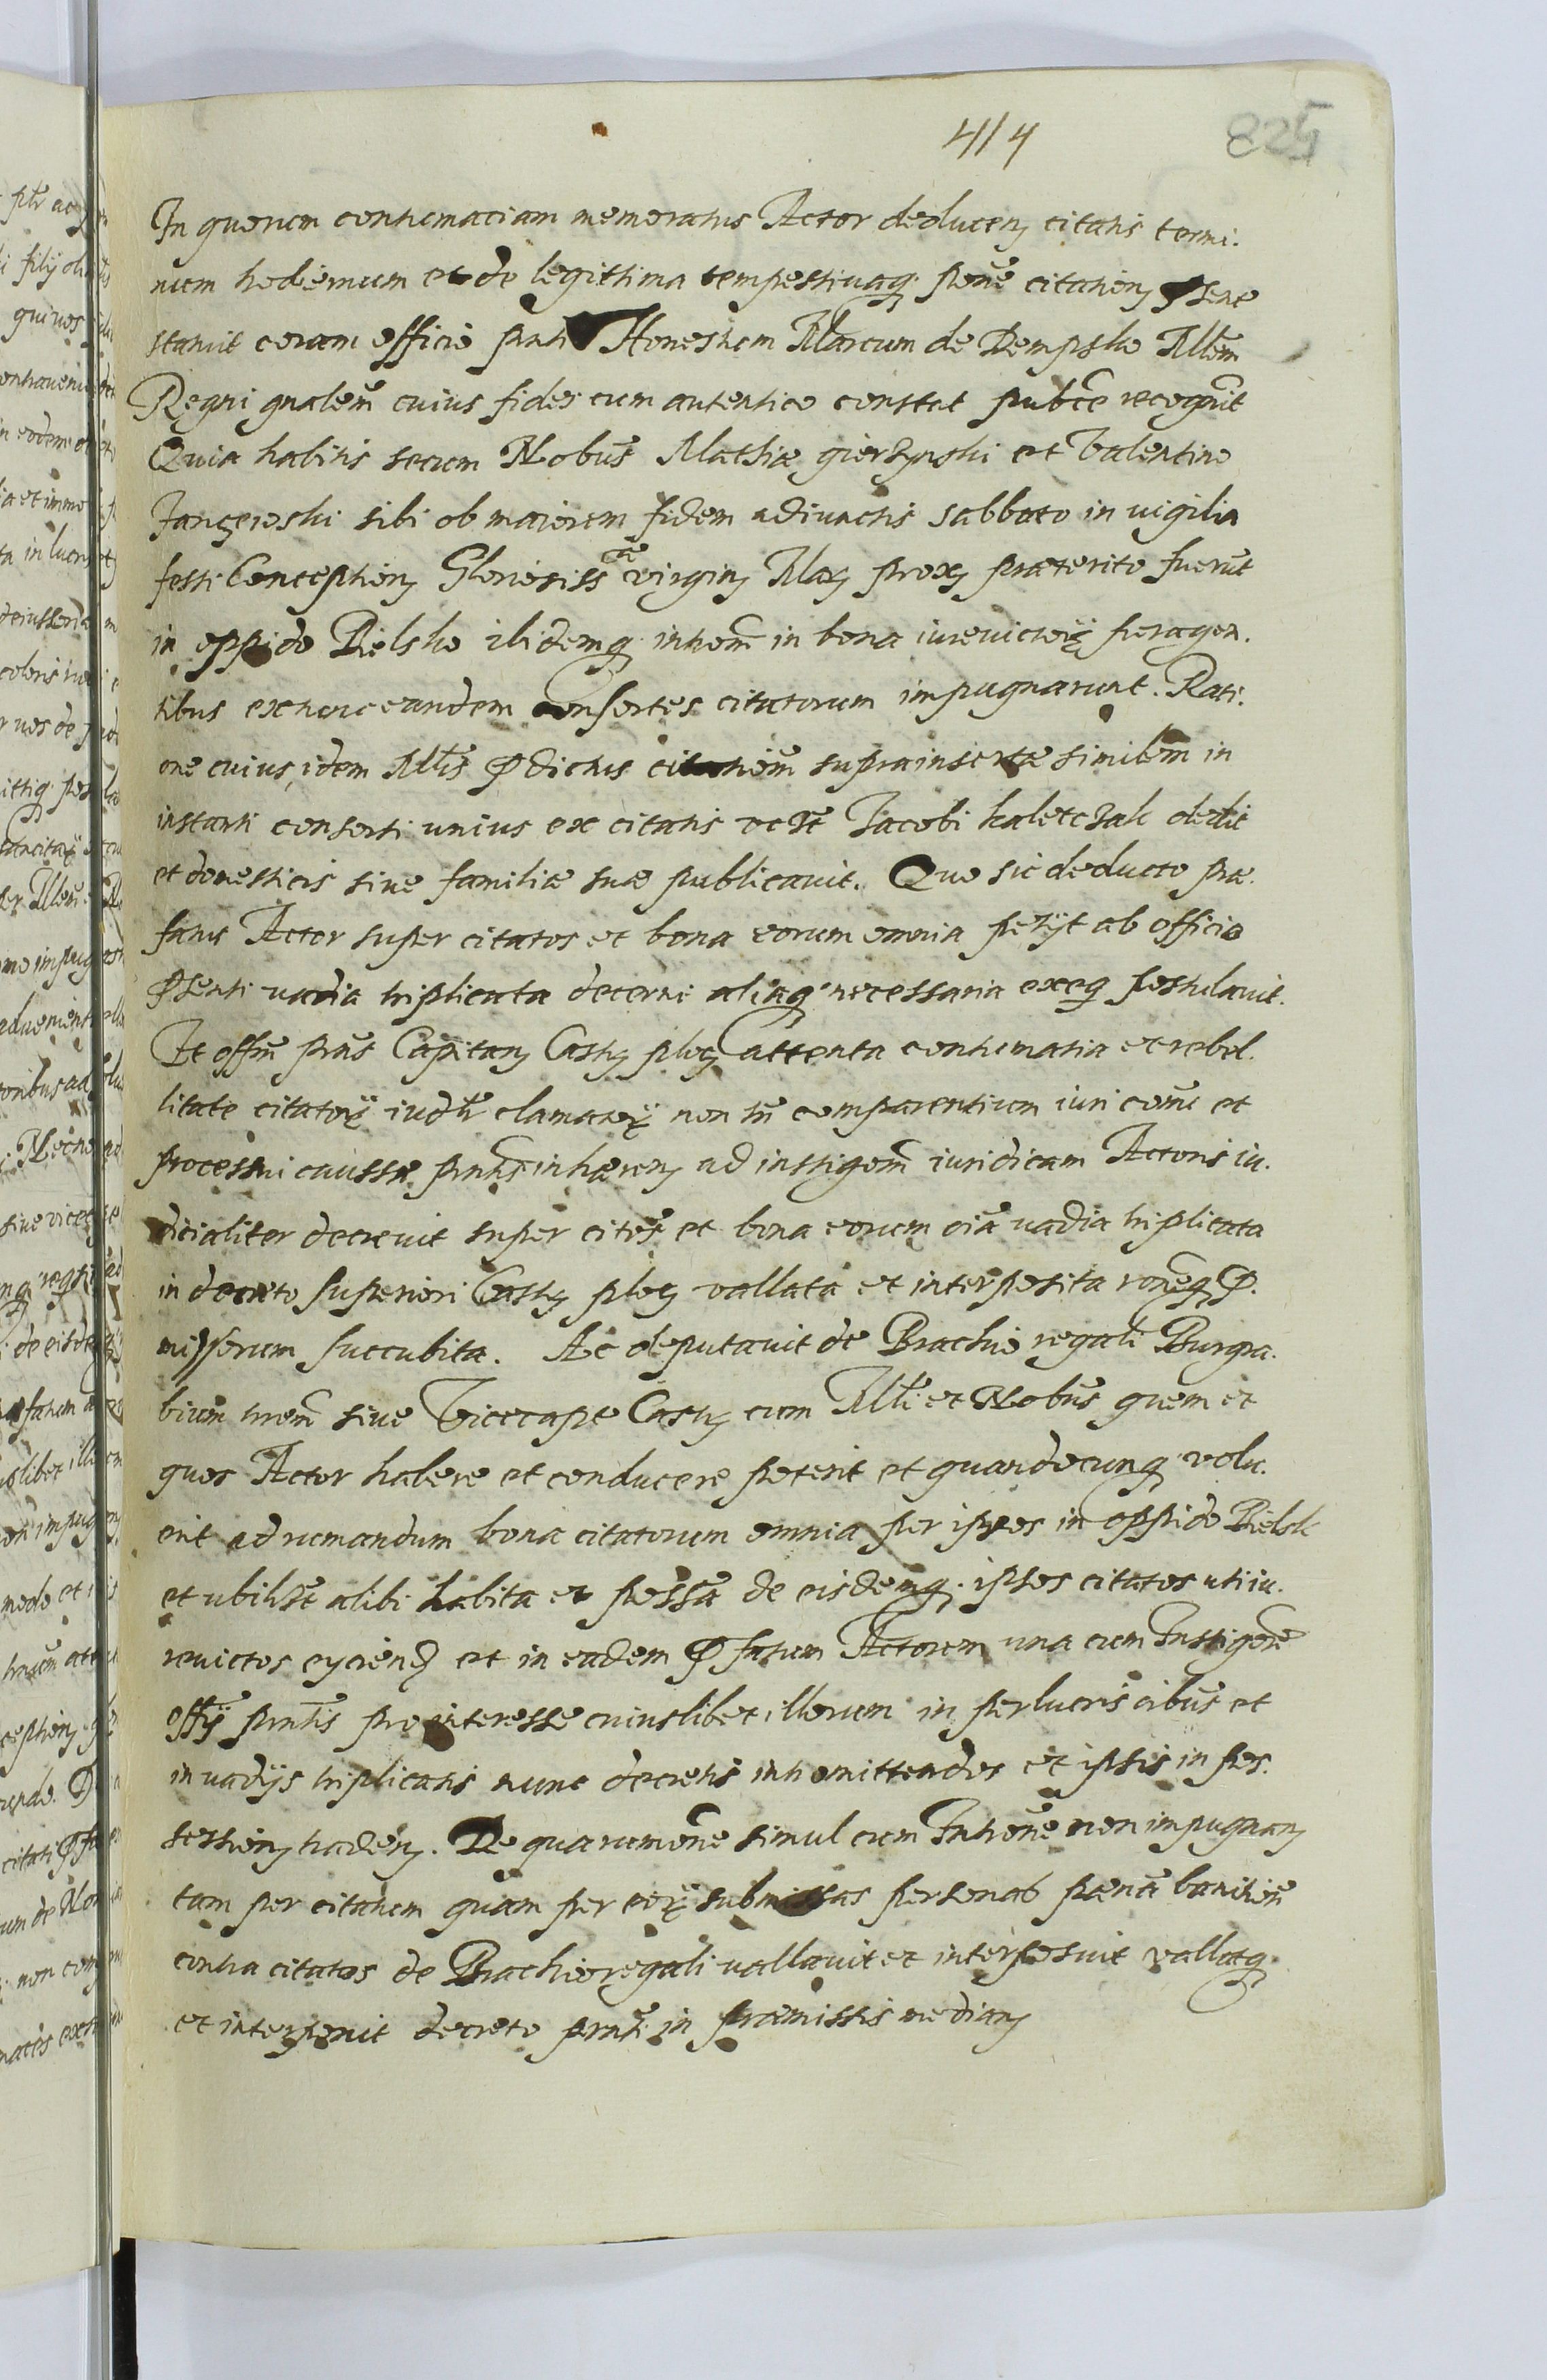 414 825
In quorum contumaciam memoratus Actor deducens citatis termi.
num hodiernum et de legittima tempestivaq. pone citationis
statuit coram officio pnti Honestum Marcum de Dempsko Mlem
Regni gnalem cuius fides cum autentico constat pubce recognit
Quia habitis secum Nobus Mathia gierzynski et Valentino
sibi ob maiorem fidem adiunctis sabbato in vigilia
festi Conceptionis Gloriosiss ae virginis Mar proxs praeterito fuerut
in oppido Bielsko ibidemq introm in bona iurevictorum peragen.
tibus ex nunc eandem consortes citatorum impugnarunt. Rati.
one cuius, idem Mlis pdictus citationem suprainsertae similem in
instanti consorti unius ex citatis vczt Jacobi kaletczak dedit
et domesticis sive familiae suae publicavit. Quo sic deducto prae.
fatus Actor super citatos et bona eorum omnia petijt ab officio
psenti vadia triplicata decerni aliaq necessaria exeq postulavit.
Et offm pns Capitan Castr ploc attenta contumatia et rebel.
litate citatorum iudtr clamatorum non tn comparentium iuri comi et
processui caussae pntis inhaerens ad instigom iuridicam Actoris iu.
dicialiter decrevit super citos et bona eorum oia vadia triplicata
in decreto superiori Castr ploc vallata et interposita roneq p.
missorum succubita. Ac deputavit de Brachio regali Burgra.
bium sive Vicecapt Castr cum Mli et Nobus quem et
quos Actor habere et conducere poterit et quandocunq volu.
erit ad rumandum bona citatorum omnia per ipsos in oppido Bielsk
et ubilzt alibi habita et possa de eisdemq. ipsos citatos uti iu.
revictos eyciend et in eadem pfatum Actorem una cum Instigore
offij pntis pro interesse cuiuslibet illorum in perlucris oibus et
in vadijs triplicatis nunc decretis intromittendos et ipsis in pos.
sessionem traden. De qua rumone simul cum Introne non impugnan
tam per citatum quam per eorum submissas personas poena banitionis
contra citatos de Brachio regali vallavit et interposuit vallatq.
et interponit decreto pnti in praemissis median